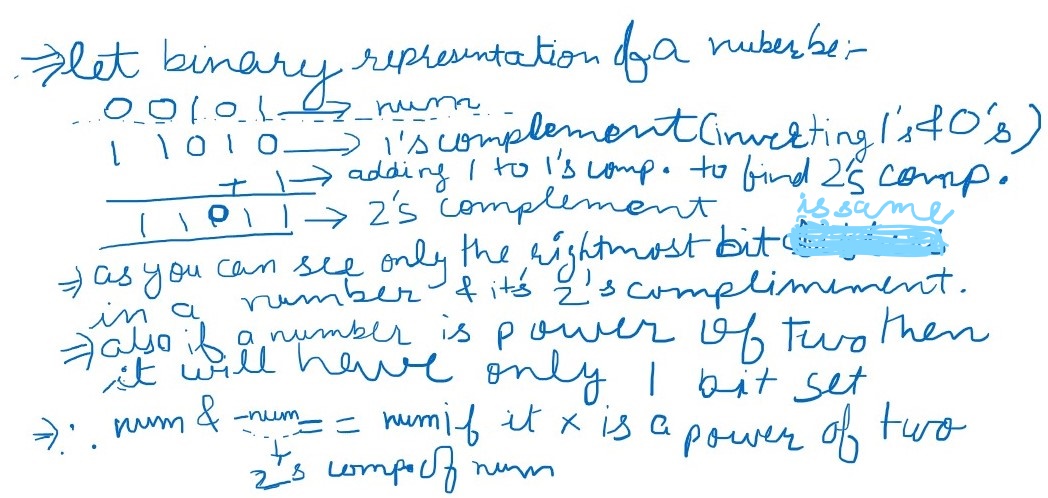 ⇒ let binary representation of a nuber be:-
00101 → num
11010 → 1's complement (inverting 1's & 0's)
+ 1 → adding 1 to 1's comp. to find 2's comp.
11011 → 2's complement
⇒ as you can see only the rightmost bit is same
in a number & it's 2's complimiment.
⇒ also if a number is power of two then
it will have only 1 bit set
⇒ ∴ num & -num == num if it x is a power of two
2's comp. of num